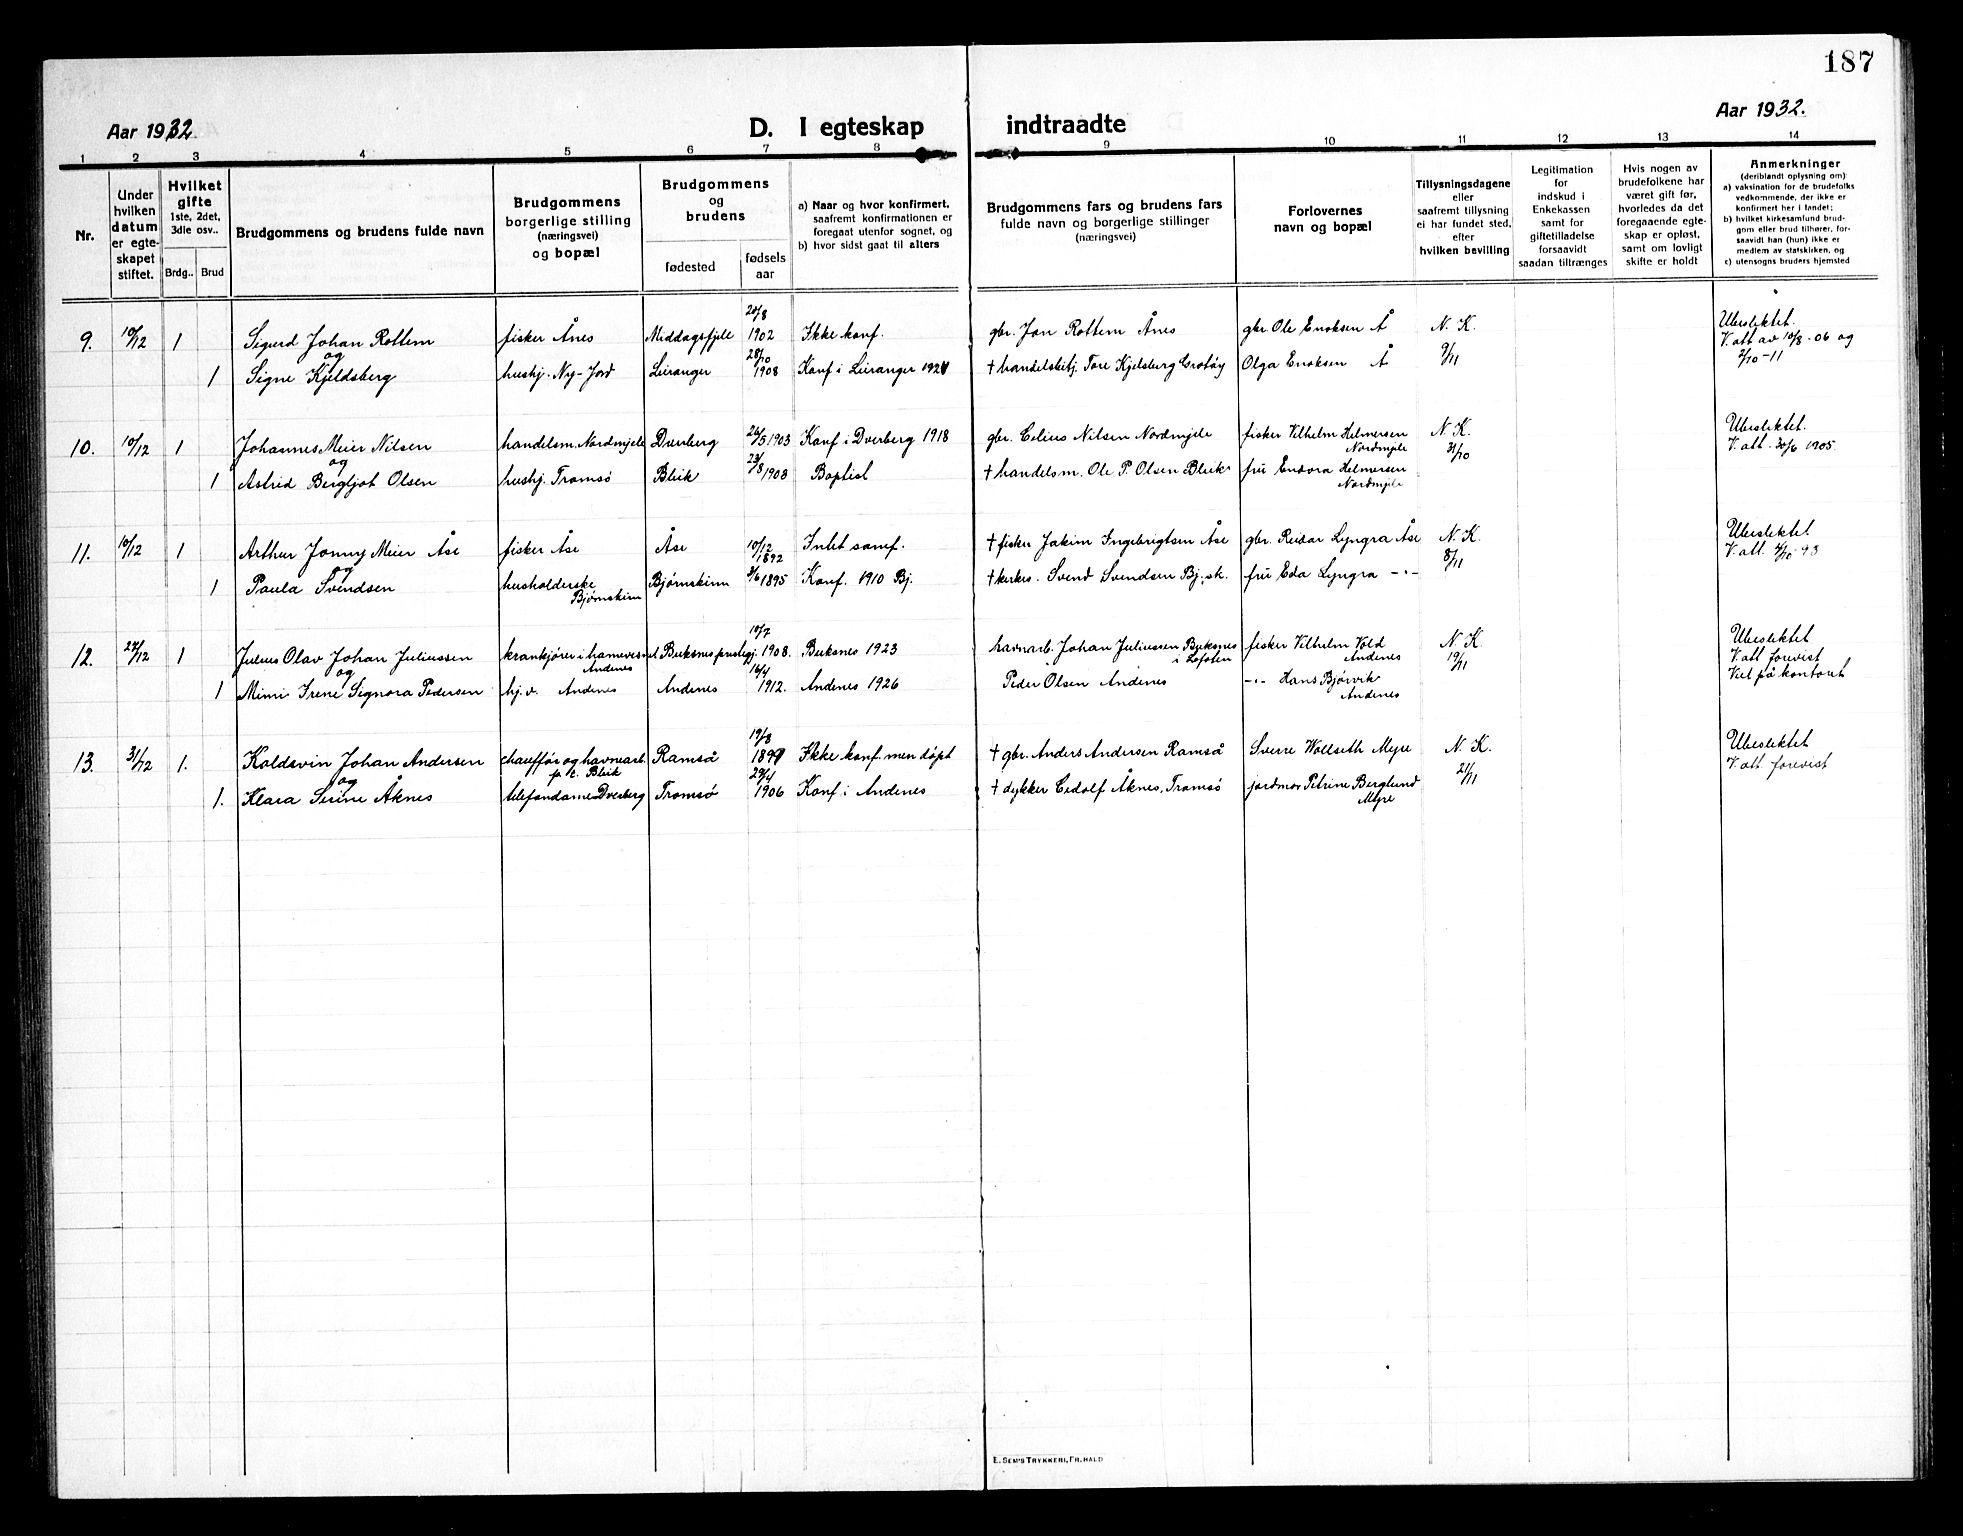 187
Aar 1932.
D. I egteskap
indtraadte
Aar 1932.
1 2 3 4 5 6 7 8 9 10 11 12 13 14
Nr.
Under hvilken datum er egteskapet stiftet.
Hvilket gifte 1ste, 2det, 3die osv..
Brdg.. Brud
Brudgommens og brudens fulde navn
Brudgommens borgerlige stilling (næringsvei) og bopæl
Brudgommens og brudens
fødested
fødsels aar
a) Naar og hvor konfirmert, saafremt konfirmationen er foregaat utenfor sognet, og
b) hvor sidst gaat til alters
Brudgommens fars og brudens fars fulde navn og borgerlige stillinger (næringsvei)
Forlovernes navn og bopæl
Tillysningsdagene eller saafremt tillysning ei har fundet sted, efter hvilken bevilling
Legitimation for indskud i Enkekassen samt for giftetilladelse forsaavidt saadan tiltrænges
Hvis nogen av brudefolkene har været gift før, hvorledes da det foregaaende egteskap er opløst, samt om lovligt skifte er holdt
Anmerkninger
(deriblandt oplysning om)
a) vaksination for de brudefolks vedkommende, der ikke er konfirmert her i landet;
b) hvilket kirkesamlund brudgom eller brud tilhører, forsaavidt han (hun) ikke er medlem av statskirken, og
c) utensogns bruders hjemsted
9. 10/12 1 Sigurd Johan Rottem fisker Ånes Middagsfjele 20/8 1902 Ikke konf. gbr. Jon Rottem Ånes gbr. Ole Enoksen Å N. K. Ubeslektet.
og 9/11 V. att av 10/8-06 og
1 Signe Kjeldsberg hushj. Ny-Jord Leiranger 28/10 1908 Konf i Leiranger 1924 † handelsbetj. Tore Kjelsberg Grotøy Olga Enoksen Å 2/10-11
10. 10/12 1 Johannes Meier Nilsen handelsm. Nordmjele Dverberg 26/5 1903 Konf i Dverberg 1918 gbr. Celius Nilsen Nordmjele fisker Vilhelm Helmersen Nordmjele N. K. Ubeslektet.
og 31/10 V. att. 30/6 1905.
1 Astrid Bergljot Olsen hushj. Tromsø Bleik 23/8 1903 Baptist † handelsm. Ole P. Olsen Bleik fru Endora Helmersen Nordmjele
11. 10/12 1 Arthur Jonny Meier Åse fisker Åse Åse 10/12 1892 Intet samf. † fisker Jakim Ingebrigtsen Åse gbr. Reidar Lyngra Åse N. K. Ubeslektet
og 8/11 V. att. 4/10-93
1 Paula Svendsen husholderske Bjørnskinn Bjørnskinn 3/6 1895 Konf. 1910 Bj. † kirkes. Svend Svendsen Bj. sk. fru Eda Lyngra -"-
12. 27/12 1 Julius Olav Johan Juliussen krankjører i havnevesenet Andenes Buksnes prestegj. 10/7 1908. Buksnes 1923 havnarb. Johan Juliussen Buksnes i Lofoten fisker Vilhelm Vold Andenes N. K. Ubeslektet
og 19/11 V. att forevist
1 Mimi Irene Signora Pedersen hj. v. Andenes Andenes 16/4 1912. Andenes 1926 Peder Olsen Andenes -"- Hans Bjørvik Andenes Viel på kontoret
13. 31/12 1. Koldevin Johan Andersen chauffør og havnearb. p. t. Bleik Ramså 19/8 1897 Ikke konf. men døpt † gbr. Anders Andersen Ramså Sverre Wollseth Myre N. K. Ubeslektet
og 21/11 V. att forevist
1. Klara Serine Åknes telefondame Dverberg Tromsø 29/4 1906 Konf i Andenes † dykker Cedolf Åknes, Tromsø jordmor Petrine Berglund Myre
E. SEM'S TRYKKERI, FR.HALD